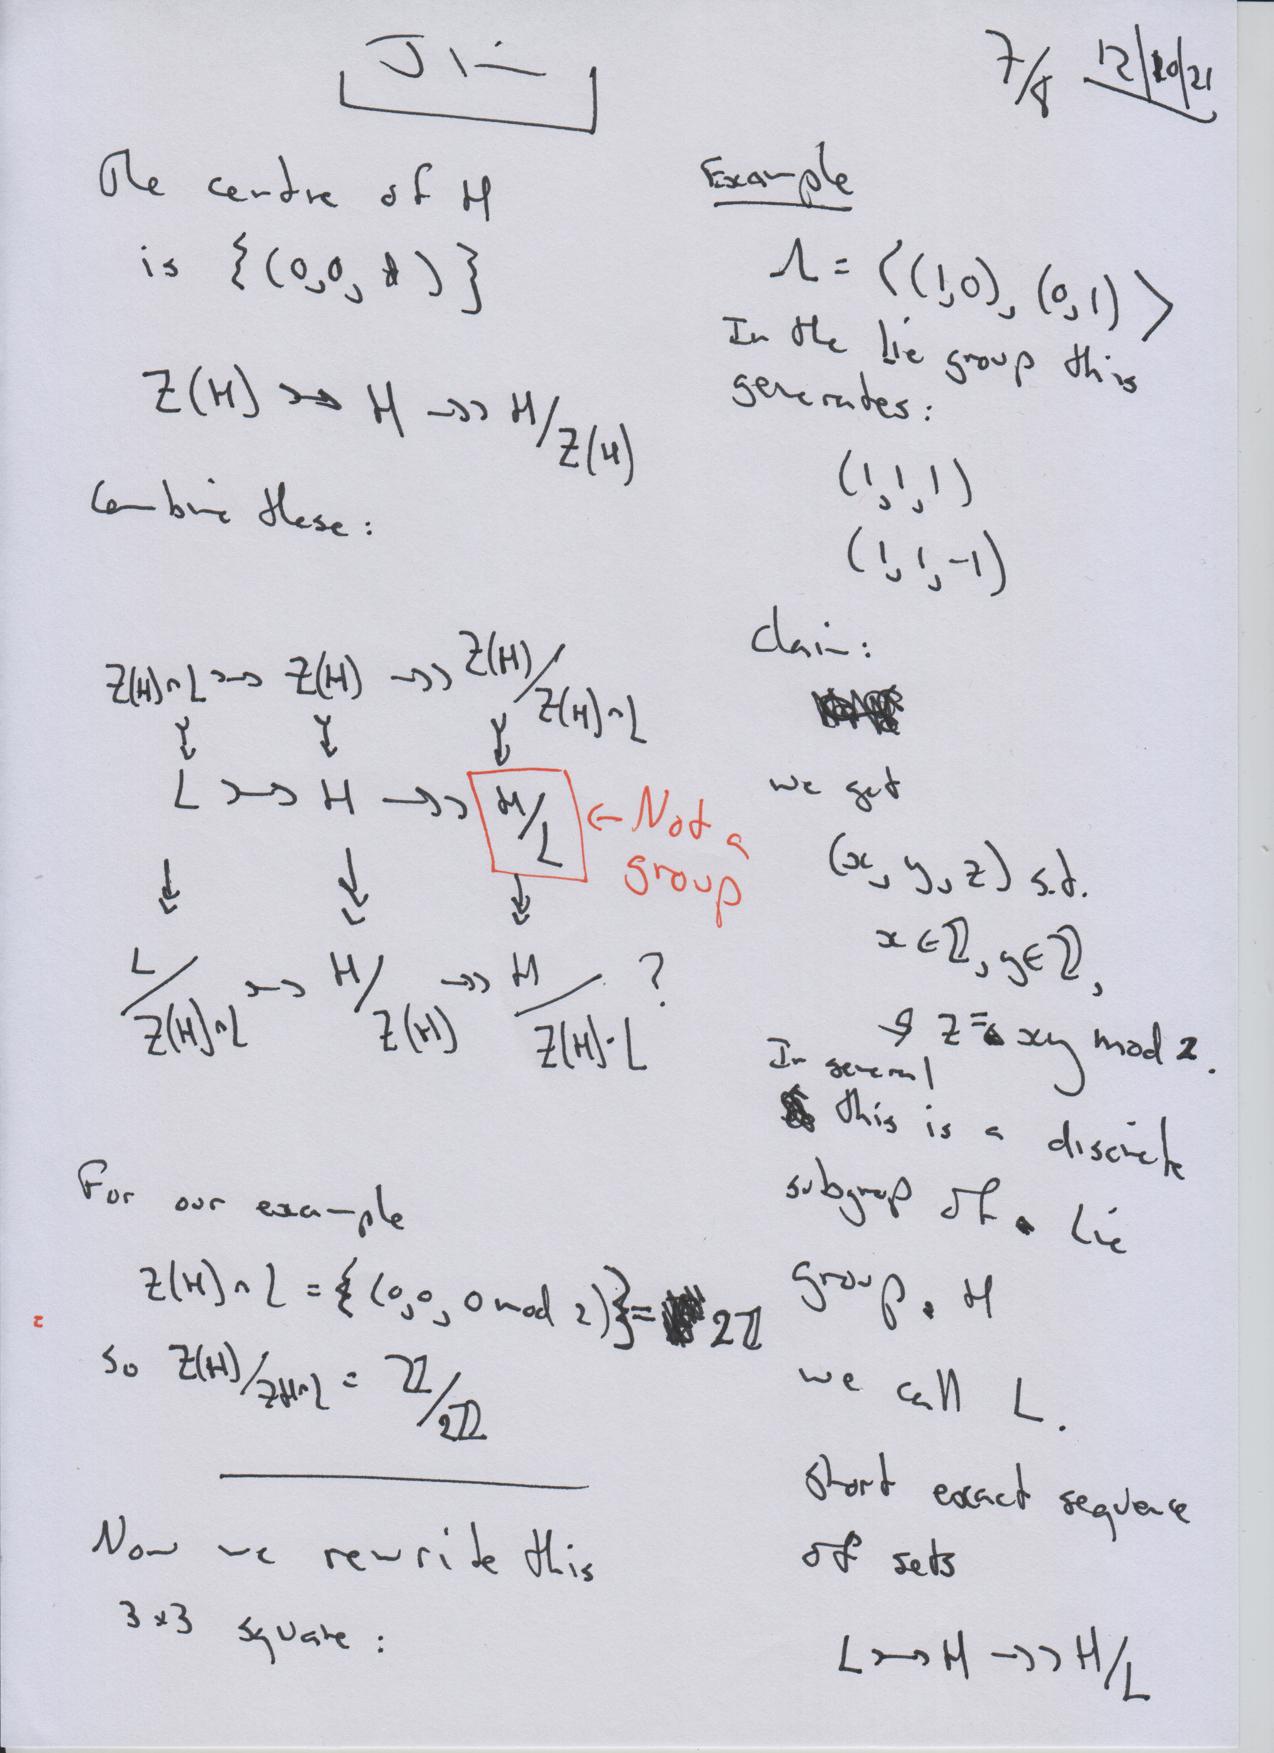 Jim
7/8 12/10/21
The centre of H
is {(0,0,*)}
Z(H) ↣ H ↠ H/Z(H)
Combine these:
Z(H)∩L ↣ Z(H) ↠ Z(H)/Z(H)∩L
L ↣ H ↠ H/L ← Not a
group
L/Z(H)∩L ↣ H/Z(H) ↠ H/Z(H)·L ?
For our example
Z(H)∩L = {(0,0,0 mod 2)} = 2ℤ
so Z(H)/Z(H)∩L = ℤ/2ℤ
Now we rewrite this
3×3 square:
Example
Λ = ⟨(1,0), (0,1)⟩
In the Lie group this
generates:
(1,1,1)
(1,1,-1)
Claim:
we get
(x, y, z) s.t.
x ∈ ℤ, y ∈ ℤ,
& z = xy mod 2.
In general
this is a discrete
subgroup of Lie
group H
we call L.
Short exact sequence
of sets
L ↣ H ↠ H/L